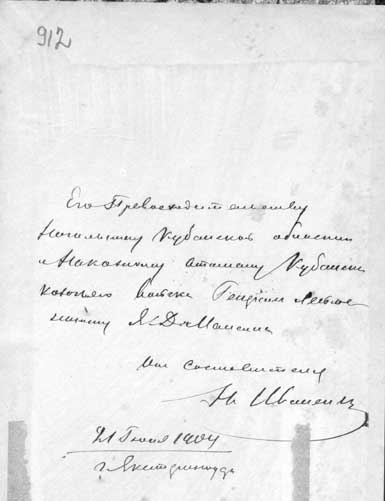 912
Его Превосходительству
Начальнику Кубанской области
и Наказному Атаману Кубанск
казачьего войска Генералу Лейте
нанту Я. Д. Маламе
От составителя
Н. Иваненк
21 Июля 1904
г. Екатеринодар